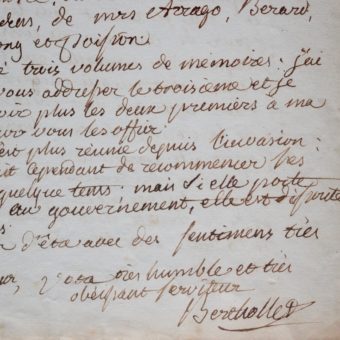 de mrs Arrago, Berard,
et poisson
trois volumes de mémoires : j'ai
vous addresser le troisieme et je
plus les deux premiers a ma
vous les offrir
plus réunie depuis l'invasion :
cependant de recommencer ses
quelque tems. mais si elle porte
au gouvernement, elle est
d'etre avec des sentimens très
votre très humble et très
obeissant serviteur
Berthollet